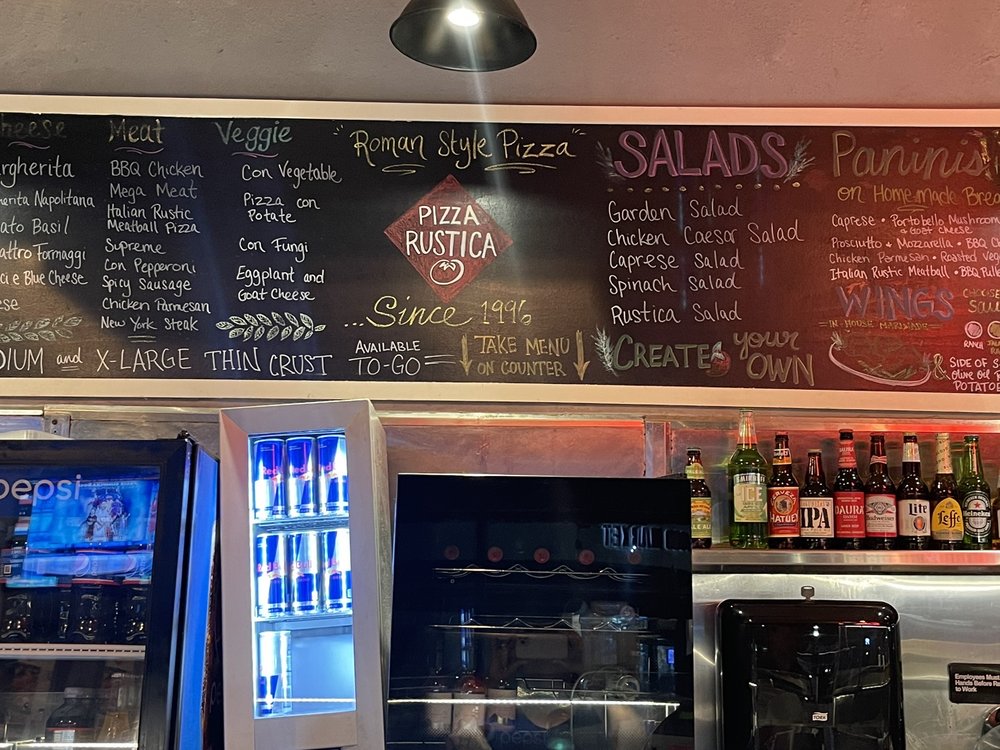 Meat
BBQ Chicken
Mega Meat
Italian Rustic
Meatball Pizza
Supreme
Con Pepperoni
Spicy Sausage
Chicken Parmesan
New York Steak
Veggie
Con Vegetable
Pizza con
Potate
Con Fungi
Eggplant and
Goat Cheese
and X-LARGE THIN CRUST
"Roman Style Pizza"
PIZZA
RUSTICA
...Since 1996
AVAILABLE
TO-GO
TAKE MENU
ON COUNTER
SALADS
Garden Salad
Chicken Caesar Salad
Caprese Salad
Spinach Salad
Rustica Salad
CREATE your
OWN
Paninis
on Homemade
Caprese • Portobello Mushroom
& Goat Cheese
Prosciutto & Mozzarella • BBQ
Chicken Parmesan • Roasted
Italian Rustic Meatball • BBQ
WINGS
IN-HOUSE MARINADE
RANCH
& SIDE OF
Olive Oil
pepsi
Red Bull
ICE
IPA
DAURA
Budweiser
Lite
Leffe
Heineken
TORK
Employees Must
Hands Before
to Work